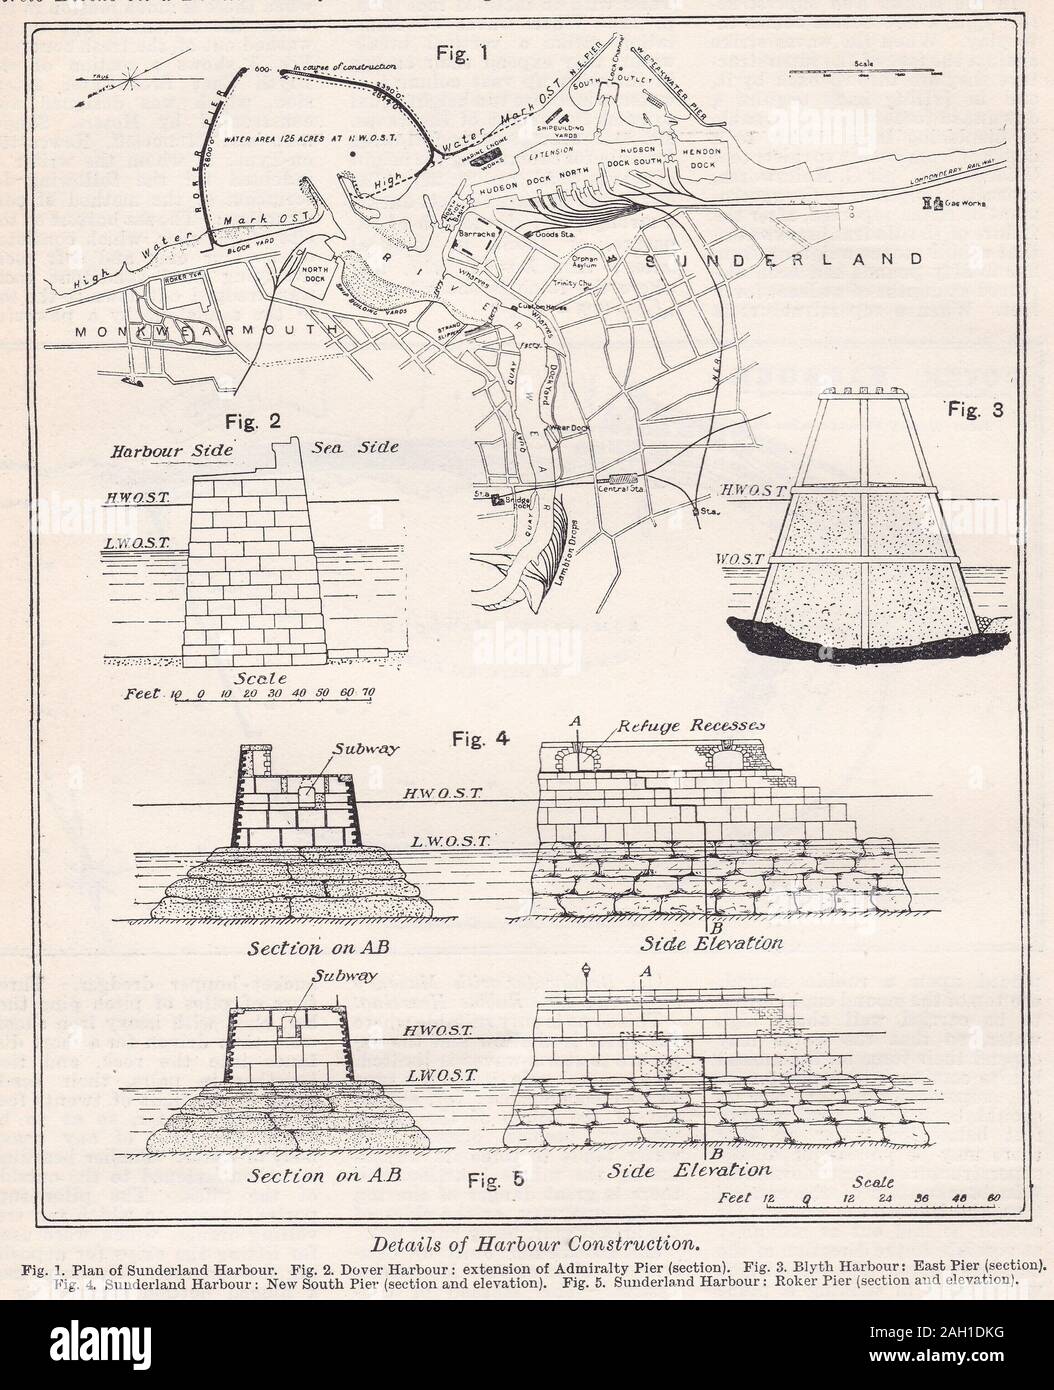 Fig. 1
TRUE
600
In course of construction
ROKER PIER
2800'0"
WATER AREA 125 ACRES AT H.W.O.S.T.
High Water Mark O.S.T.
N.E. PIER
SOUTH OUTLET
Lock Channel
Scale
SHIPBUILDING YARDS
MARINE ENGINE WORKS
EXTENSION
HUDSON DOCK NORTH
HUDSON DOCK SOUTH
HENDON DOCK
LONDONDERRY RAILWAY
Gas Works
High Water Mark OST
BLOCK YARD
Barracks
Goods Sta.
Orphan Asylum
SUNDERLAND
Trinity Chu.
NORTH DOCK
SHIP BUILDING YARDS
RIVER
Wharves
Custom House
Wharves
Ferry
MONKWEARMOUTH
STRAND SLIPWAY
QUAY
Dock Yard
WEAR
Wear Dock
N.E.R
QUAY
Sta.
Bridge Dock
Central Sta.
Sta.
QUAY
Lambton Drops
Fig. 2
Harbour Side
Sea Side
H.W.O.S.T.
L.W.O.S.T.
Scale
Feet 10 0 10 20 30 40 50 60 70
Fig. 3
H.W.O.S.T
W.O.S.T
Fig. 4
Subway
A
Refuge Recesses
H.W.O.S.T.
L.W.O.S.T.
B
Section on AB
Side Elevation
Subway
A
H.W.O.S.T.
L.W.O.S.T.
B
Section on A.B
Fig. 5
Side Elevation
Scale
Feet 12 0 12 24 36 48 60
Details of Harbour Construction.
Fig. 1. Plan of Sunderland Harbour. Fig. 2. Dover Harbour: extension of Admiralty Pier (section). Fig. 3. Blyth Harbour: East Pier (section).
Fig. 4. Sunderland Harbour: New South Pier (section and elevation). Fig. 5. Sunderland Harbour: Roker Pier (section and elevation).
alamy
Image ID: 2AH1DKG
www.alamy.com